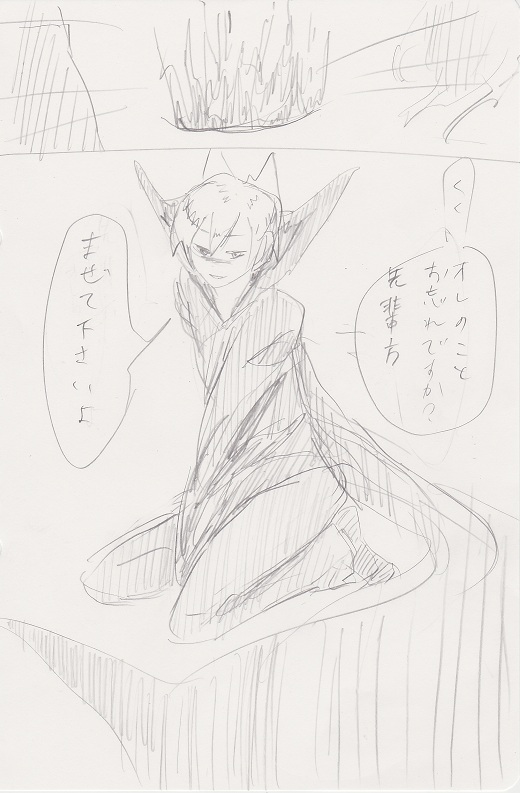 くく
オレのこと
お忘れですか?
先輩方
まぜて下さいよ